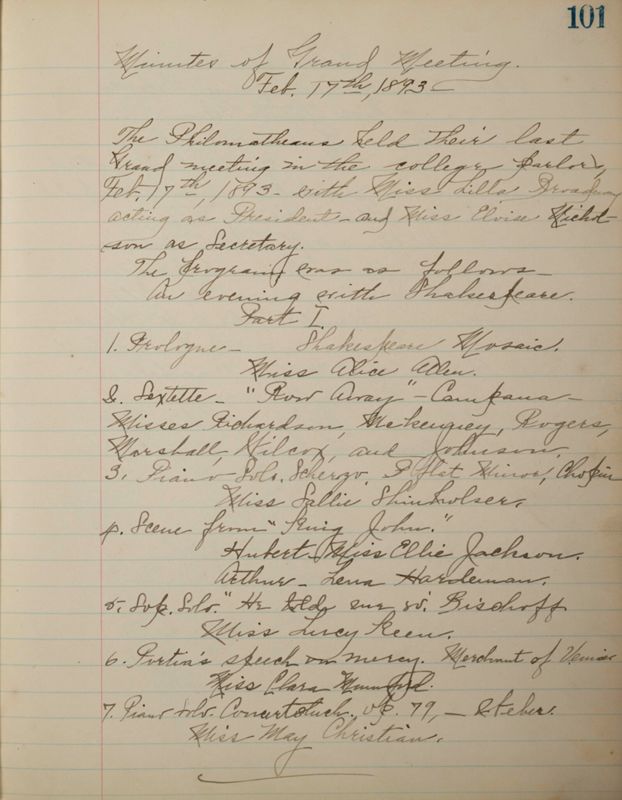 101
Minutes of Grand Meeting.
Feb. 17th, 1893 —
The Philomatheans held their last
Grand meeting in the college parlor,
Feb. 17th, 1893 - with Miss Lilla Broadnax
acting as President - and Miss Eloise Nichol-
son as Secretary.
The program was as follows —
An evening with Shakespeare.
Part I.
1. Prologue - Shakespeare Mosaic.
Miss Alice Allen.
2. Sextette - "Row Away" - Campana -
Misses Richardson, McKenney, Rogers,
Marshall, Wilcox, and Johnson.
3. Piano Solo, Scherzo, B flat Minor, Chopin
Miss Sallie Shinholser.
4. Scene from "King John."
Hubert - Miss Ellie Jackson.
Arthur - Lena Hardeman.
5. Sop. Solo. "He told me so." Bischoff
Miss Lucy Keen.
6. Portia's speech on mercy. Merchant of Venice
Miss Clara Mumford.
7. Piano Solo. Concertstuck, op. 79, — Weber.
Miss May Christian.